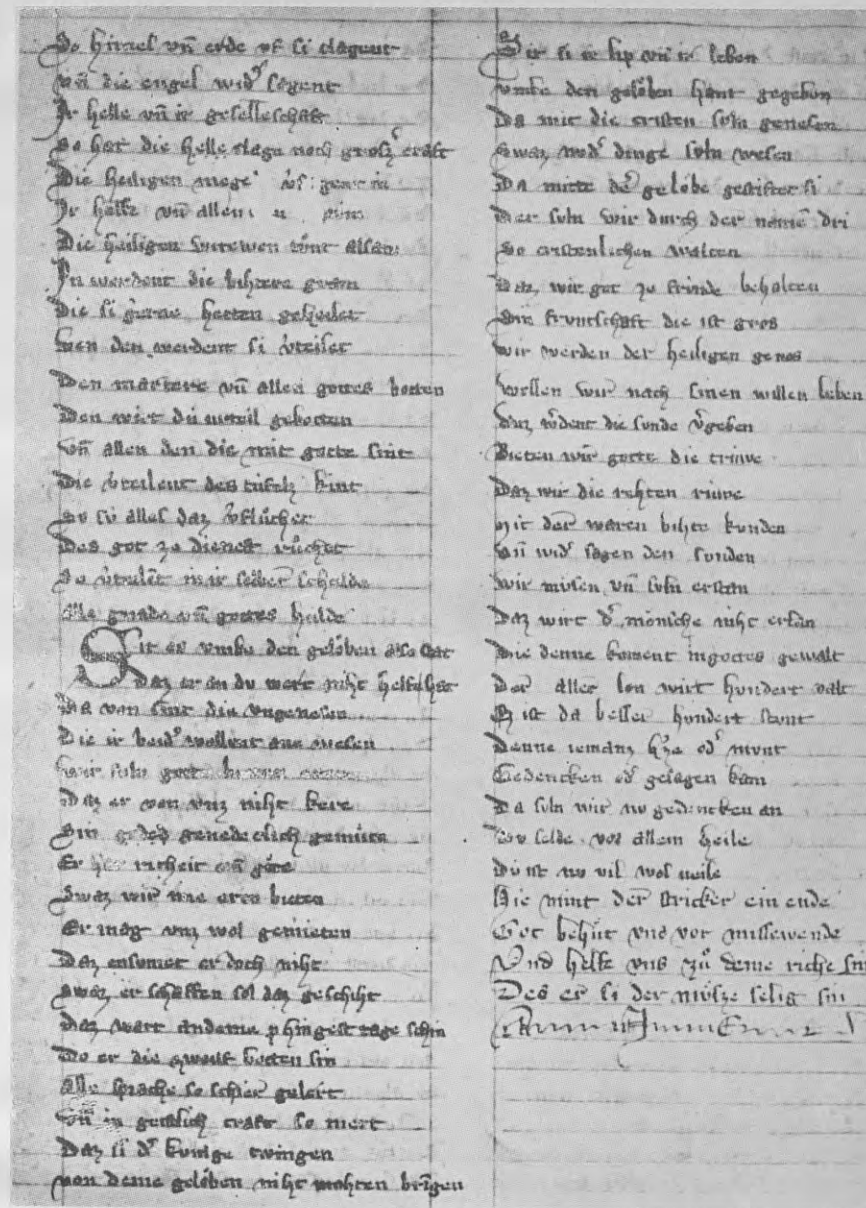 So himel vn̄ erde vf si clagent
vn̄ die engel wid᾿ sagent
Jr helle vn̄ ir geselleschaft
So hat die helle clage noch grosz᾿ craft
Die heiligen mege
Jr helfe vn̄ allem
Die heiligen vrowen tůnt alsam
Jn werdent die bihtere gram
Die si gerne hetten geheilet
von den werdent si v᾿teilet
Den martere vn̄ allen gottes botten
Den wirt dú urteil gebotten
vn̄ allen den die mit gotte sint
Die v᾿teilent des tufels kint
So si alles daz v᾿flůchet
Des got ze dienest růchet
So v᾿teilēt mir selber schulde
Alle gnade vn̄ gottes hulde
Sit er vmbe den gelöben also hat
Daz er an dú wert niht helfe hat
Da von sint die vngenesen
Die ir beid᾿ wollent ane wesen
wir soln got
Daz er von vnz niht kere
Sin gedeg genedeclich gemüte
Er het richeit vn̄ gůte
Swaz wir ime eren bieten
Er mag vnz wol gemieten
Daz ensumet er doch niht
Swaz er schaffen sol daz geschiht
Daz wart andeme phingest tage schin
Do er die zwelf botten sin
Alle sprache so schier gelert
vn̄ in geistlich craft so mert
Daz si d᾿ kunige twingen
von deme gelöben niht mohten brīgen
Sit si ir lip vn̄ ir leben
vmbe den gelöben hant gegeben
Da mit die cristen soln genesen
Swaz nod᾿ dinge soln wesen
Da mitte der gelöbe gestiftet si
Der soln wir durch der namē dri
So cristenlichen walten
Daz wir got ze frúnde behalten
Sin fruntschaft die ist gros
wir werden der heiligen genos
wellen wir nach sinen willen leben
Daz w᾿dent die sunde v᾿geben
Bieten wir gotte die triuwe
Daz wir die rehten riuwe
Mit der waren bihte kunden
vn̄ wid᾿ sagen den sunden
wir můsen vn̄ soln erstan
Daz wirt d᾿ mönsche niht erlan
Die denne koment ingottes gewalt
Der aller lon wirt hundert valt
Ez ist da besser hundert stunt
Denne iemanz h᾿ze od᾿ munt
Gedencken od᾿ gesagen kam
Da soln wir nv gedencken an
vor selde vor allem heile
Dú ist nv vil wol veile
Hie nimt der Stricker ein ende
Got behůt vns vor missewende
Vnd helfe vns zů deme riche sin
Des er si der mösze selig sin